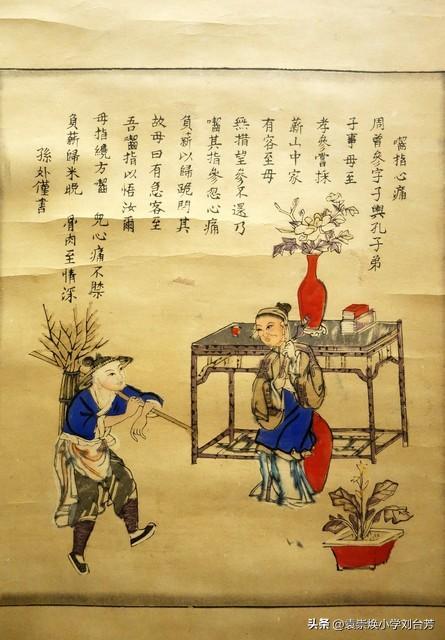 嚙指心痛
周曾參字子輿孔子弟
子事母至
孝參嘗採
薪山中家
有客至母
無措望參不還乃
嚙其指參忽心痛
負薪以歸跪問其
故母曰有急客至
吾嚙指以悟汝爾
母指纔方嚙 兒心痛不禁
負薪歸未晚 骨肉至情深
孫处僅書
头条 @袁崇焕小学刘台芳